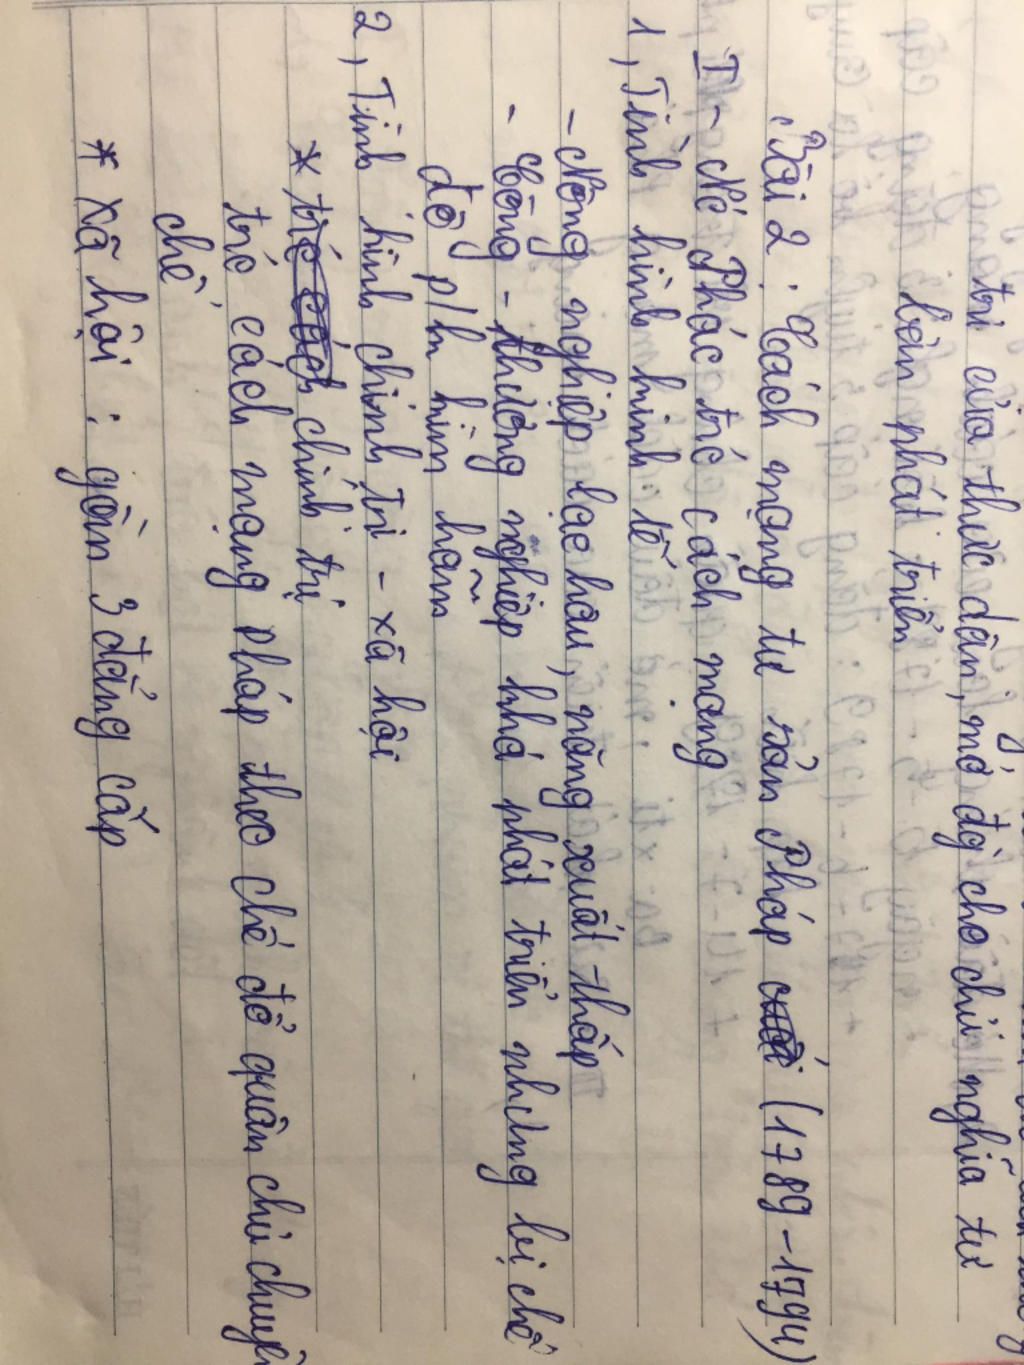 trị của thực dân, mở đg cho chủ nghĩa tư
bản phát triển
Bài 2: Cách mạng tư sản Pháp (1789-1794)
I - Nc Pháp trc cách mạng
1, Tình hình kinh tế
- Nông nghiệp lạc hậu, năng xuất thấp
- Công - thương nghiệp khá phát triển nhưng bị chế
độ p/k kìm hãm
2, Tình hình chính trị - xã hội
* chính trị
trc cách mạng pháp theo chế độ quân chủ chuyên
chế
* Xã hội: gồm 3 đẳng cấp